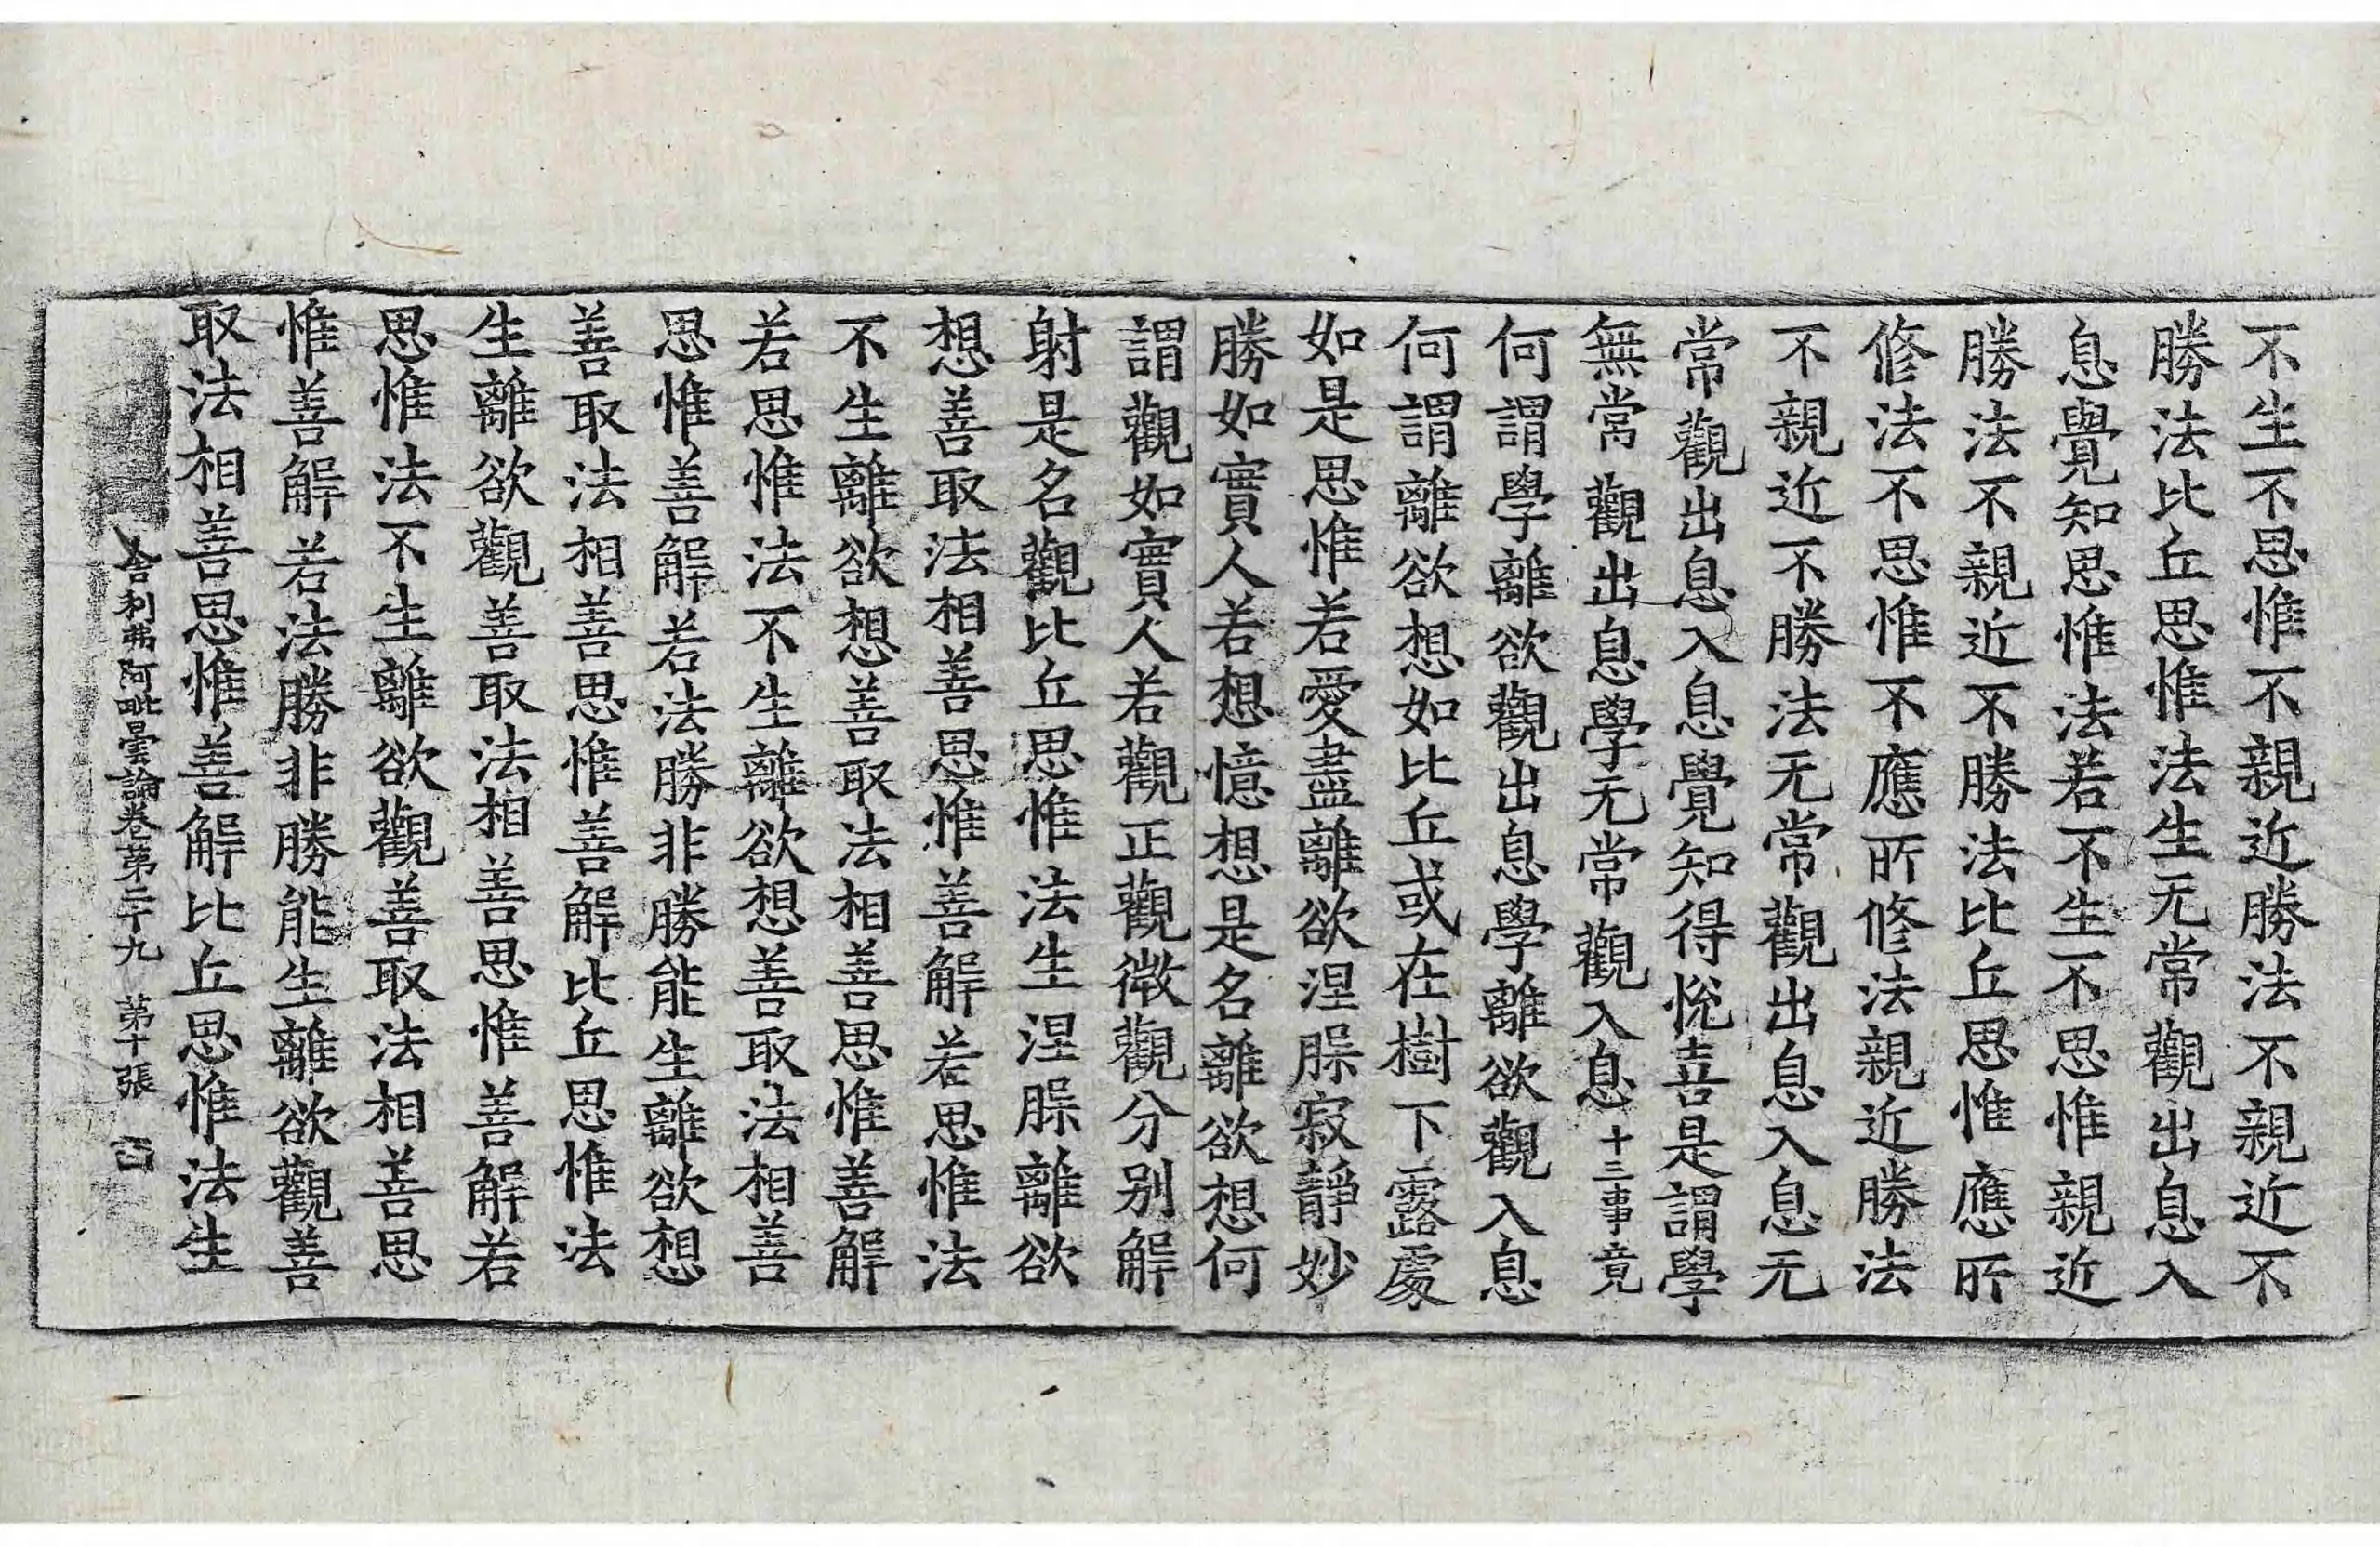 不生不思惟不親近勝法不親近不
勝法比丘思惟法生无常觀出息入
息覺知思惟法若不生不思惟親近
勝法不親近不勝法比丘思惟應所
修法不思惟不應所修法親近勝法
不親近不勝法无常觀出息入息无
常觀出息入息覺知得悅喜是謂學
無常觀出息學无常觀入息十三事竟
何謂學離欲觀出息學離欲觀入息
何謂離欲想如比丘或在樹下露處
如是思惟若愛盡離欲涅槃寂靜妙
勝如實人若想憶想是名離欲想何
謂觀如實人若觀正觀微觀分別解
射是名觀比丘思惟法生涅槃離欲
想善取法相善思惟善解若思惟法
不生離欲想善取法相善思惟善解
若思惟法不生離欲想善取法相善
思惟善解若法勝非勝能生離欲想
善取法相善思惟善解比丘思惟法
生離欲觀善取法相善思惟善解若
思惟法不生離欲觀善取法相善思
惟善解若法勝非勝能生離欲觀善
取法相善思惟善解比丘思惟法生
舍利弗阿毗曇論卷第二十九 第十張